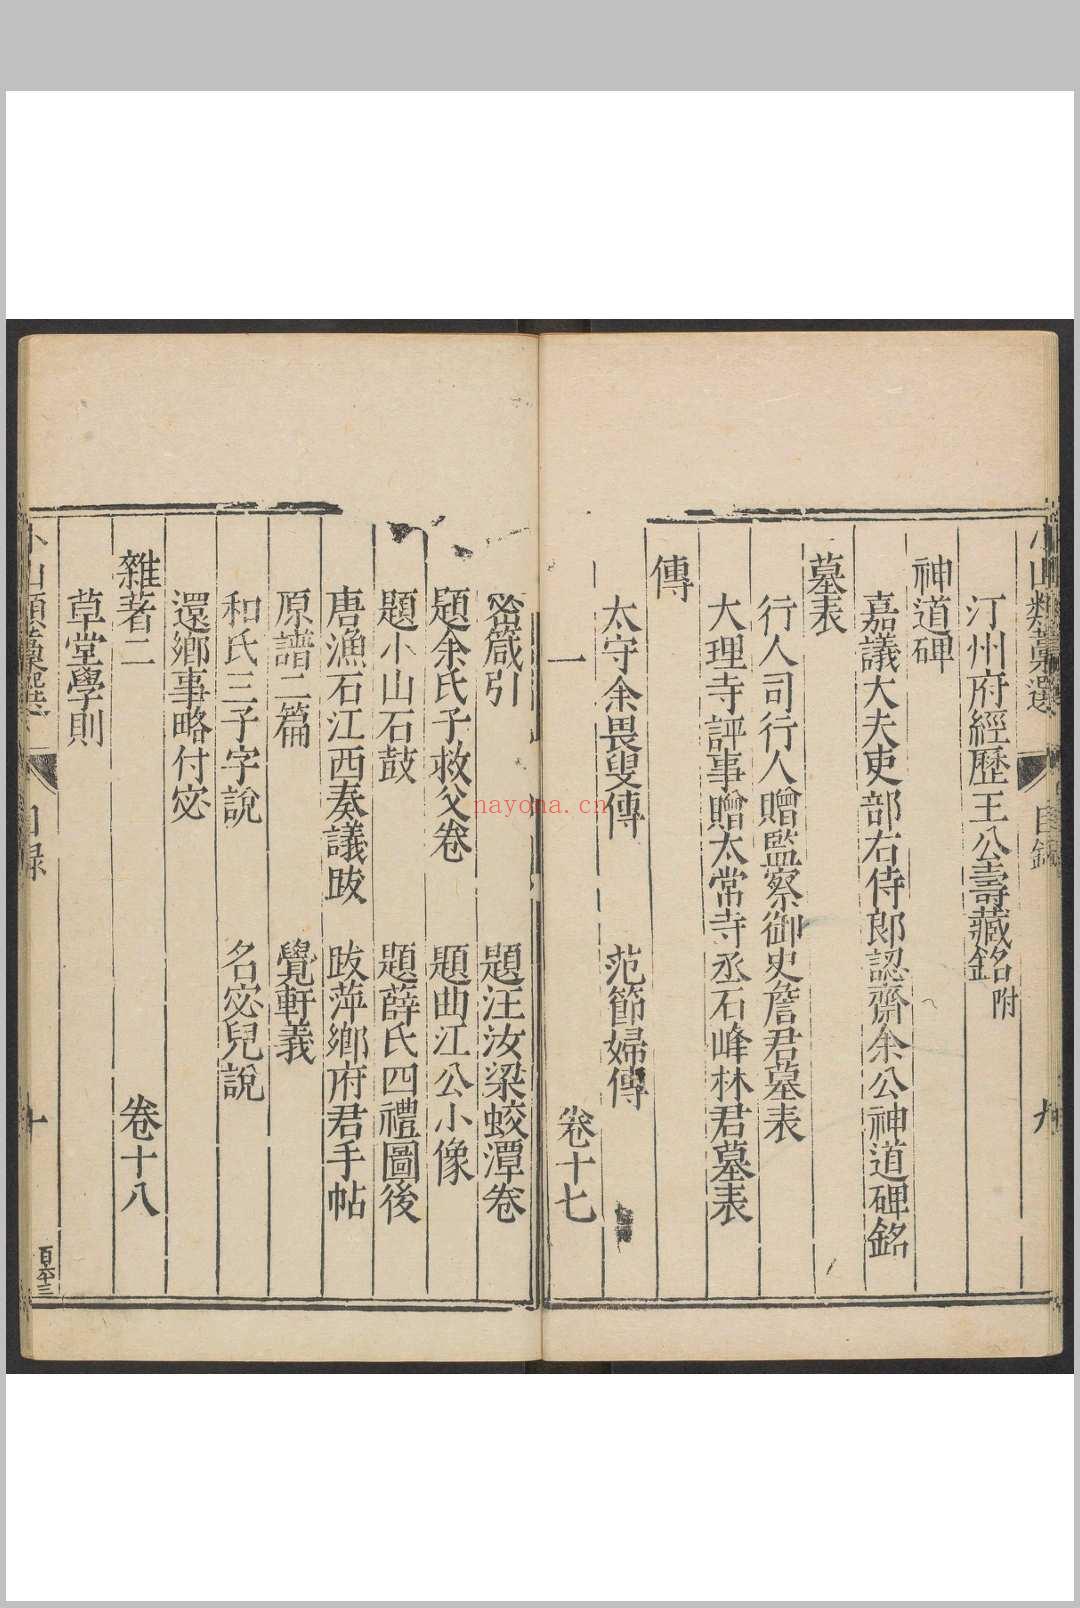 小山類藁選
目錄
九
汀州府經歷王公壽藏銘附
神道碑
嘉議大夫吏部右侍郎認齋余公神道碑銘
墓表
行人司行人贈監察御史詹君墓表
大理寺評事贈太常寺丞石峰林君墓表
傳
太守余畏叟傳 范節婦傳
一 卷十七
密箴引 題汪汝梁蛟潭卷
題余氏子救父卷 題曲江公小像
題小山石鼓 題薛氏四禮圖後
唐漁石江西奏議跋 跋萍鄉府君手帖
原譜二篇 覺軒義
和氏三子字說 名宓兒說
還鄉事略付宓
雜著二 卷十八
草堂學則
小山類藁選
目録
十
nayona.cn